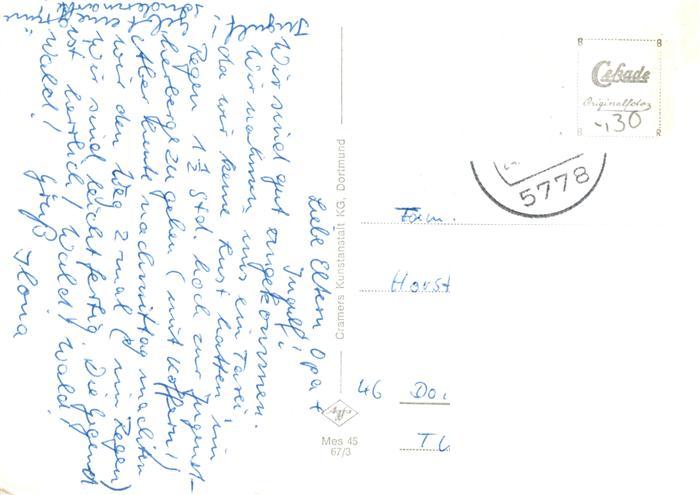 Liebe Eltern Opa +
Ingulf!
Wir sind gut angekommen.
Wir nahmen uns ein Taxi
da wir keine Lust hatten im
Regen 1 1/2 Std. hoch zur Jugend-
herberge zu gehen (mit Koffern!)
Aber heute nachmittag machten
wir den Weg 2 mal (im Regen)
Wir sind leicht fertig. Die Gegend
ist herrlich! Wald, Wald,
Wald!
Gruß Ilona
Ingulf
eine
Cramers Kunstanstalt KG, Dortmund
Mes 45
67/3
Cekade
Originalfoto
-,30
5778
Fam.
Horst
46 Do